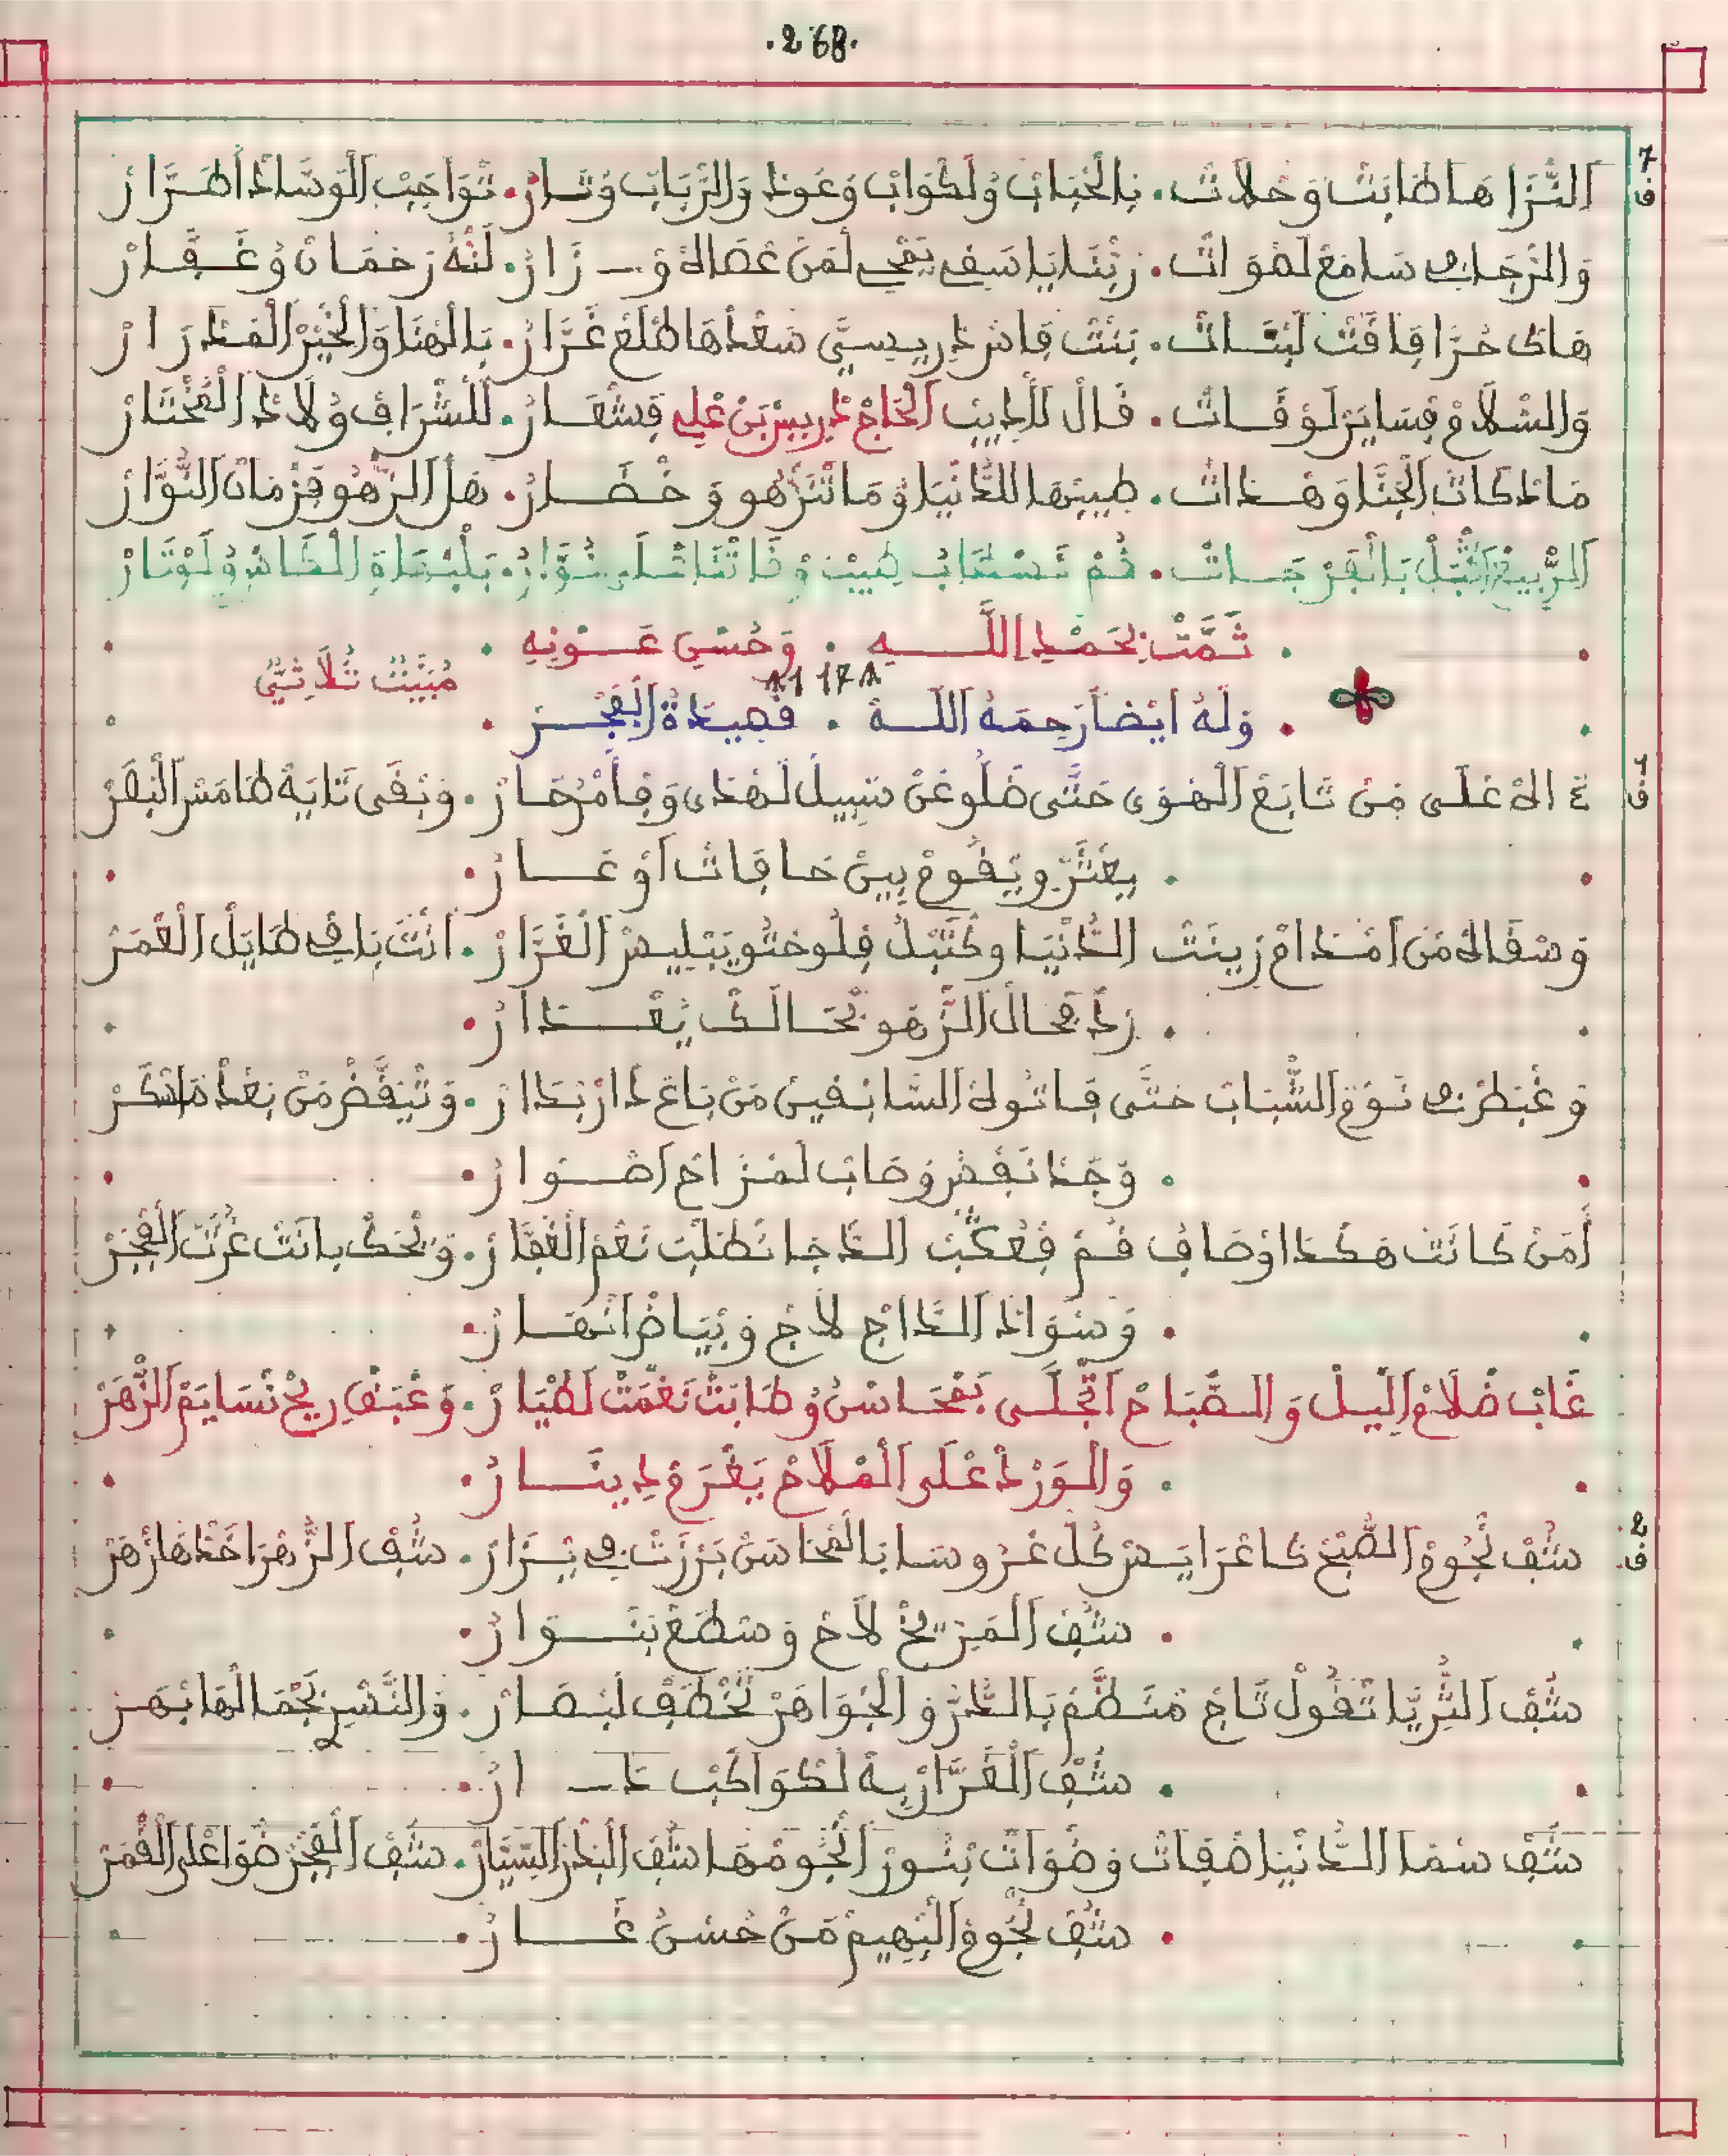 .268.
7 ف
اَلنّْزَاهَا طَابَتْ وَحْلَاتْ . بِالْحْبَابْ وُلَكْوَابْ وَعْوَدْ وَالرّْبَابْ وُتَارْ . تْوَاجَبْ اَلْوَسَّادْ اَطْرَازْ
وَالرّْجَا فِي سَامَعْ لَصْوَاتْ . رَبّْنَا يَا سَفِي يَمْحِي لَمَنْ عْصَاهْ وْزَارْ . لَنُّه رَحْمَانْ وُغَفَّارْ
هَاكْ حْرَا فَاقَتْ لَبْنَاتْ . بَنْتْ فَاسْ دْرِيسِيَّ سَعْدْهَا طْلَعْ غْرَّارْ . بَالْهْنَا وَالْخَيْرْ اَلْمَدْرَارْ
وَالسّْلَامْ فْسَايَرْ لَوْقَاتْ . قَالْ لَلْدِيبْ اَلْحَاجْ دْرِيسْ بَنْ عْلِي فَشْعَارْ . لَلشّْرَافْ وُلَادْ اَلْمُخْتَارْ
مَادْكَاتْ اَلْجْنَا وَهْدَاتْ . طِيبْهَا للدَّنْيَا وْمَا تَّنْزْهُو وَخْضَارْ . هَلْ اَلزّْهُو فَزْمَانْ اَلنُّوَّارْ
اَلرّْبِيعْ اَقْبَلْ بَالْفَرْجَاتْ . قُمْ نَسْتَابْ
تَمَّتْ بِحَمْدِ اللَّهِ . وَحُسْنِ عَوْنِهِ .
مْبَيَّتْ ثْلَاثِيّْ
1178
وَلَهُ ايْضاً رَحِمَهُ اللَّهْ . قَصِيدَةُ اَلْفْجَرْ .
1 ف
ءَاهْ عْلَى مَنْ تَابَعْ اَلْهْوَى حَتَّى ضَلُّو عْنْ سَبِيلْ لَهْدَى وَفَامْرْحَارْ . وَبْقَى تَايَهْ طَامَسْ اَلْبْصَرْ
. يعْثَرْ وِيْقُومْ بِينْ حَافَاتْ اَوْعَارْ .
وَسْقَاهْ مَنْ اَمْدَامْ زِينَتْ الدَّنْيَا وكَبَّلْ فَلُوحْتُو يَبْلِيسْ اَلْغَرَّارْ . انْتَ بَاقِي طَايَلْ اَلْعْمَرْ
. رَدّْ مْحَالْ اَلزّْهُو بْحَالَكْ يَقْدَارْ .
وَغْبَطْ فِي تَوْقْ الشّْبَابْ حَتَّى فَاتُوهْ اَلسَّابْقِينْ مَنْ بَاعْ دَارْ بْدَارْ . وَتّْيَقَّضْ مَنْ بَعْدْ مَاسْكَرْ
. وَجّْدَ نَفْسُ وصَابْ لَمْزَاحْ اَضْوَارْ .
أَمَنْ كَانَتْ هَكْدَا وْصَافُ قُمْ فْعُكْبْ الدّْجَا نَطْلَبْ نَعْمْ الْغَفَّارْ . وَنْحَكْ بِانَتْ غُرَّتْ اَلْفْجَرْ
. وَسْوَادْ اَلدَّاجْ لَاجْ وَبْيَاضْ اَنْهَارْ .
غَابْ ضْلَامْ اَللِّيلْ وَالصّْبَاحْ اَتْجَلَّى بَمْحَاسْنُ وُطَابَتْ نَغْمَتْ لَطْيَارْ . وَعْبَقْ رِيحْ نْسَايَمْ اَلزّْهَرْ
. وَالْوَرْدْ عْلَى اَلْمْلَاحْ يَغْرَمْ دِينَارْ .
2 ف
شُفْ نْجُومْ اَلصّْبَحْ كَاعْرَايَسْ كُلّْ عْرُوسَا بَالْمْحَاسَنْ بَرْزَتْ فِي يْزَارْ . شُفْ اَلزُّهْرَا خَدّْهَا زْهَرْ
. شُفْ اَلْمَرِّيخْ لَاحْ وَسْطَعْ بَنْوَارْ .
شُفْ اَلثّْرِيَّا تْقُولْ تَاجْ مْنَضَّمْ بَالدّْرْ وِالْجْوَاهَرْ تَخْطَفْ لَبْصَارْ . وَالنَّسْرِ نَجْمَا لْهَا بْهَرْ
. شُفْ اَلْغَرَّارْ بِهْ لَكْوَاكَبْ دَارْ .
شُفْ سْمَا اَلدَّنْيَا صْفَاتْ وَضْوَاتْ بْنُورْ اَنْجُومْهَا شُفْ اَلْبْدَرْ اَلسِّيَّارْ . شُفْ اَلْفْجَرْ ضْوَا عْلَى اَلْقْمَرْ
. شُفْ نْجُومْ اَلْبْهِيمْ مَنْ حُسْنُ غَارْ .